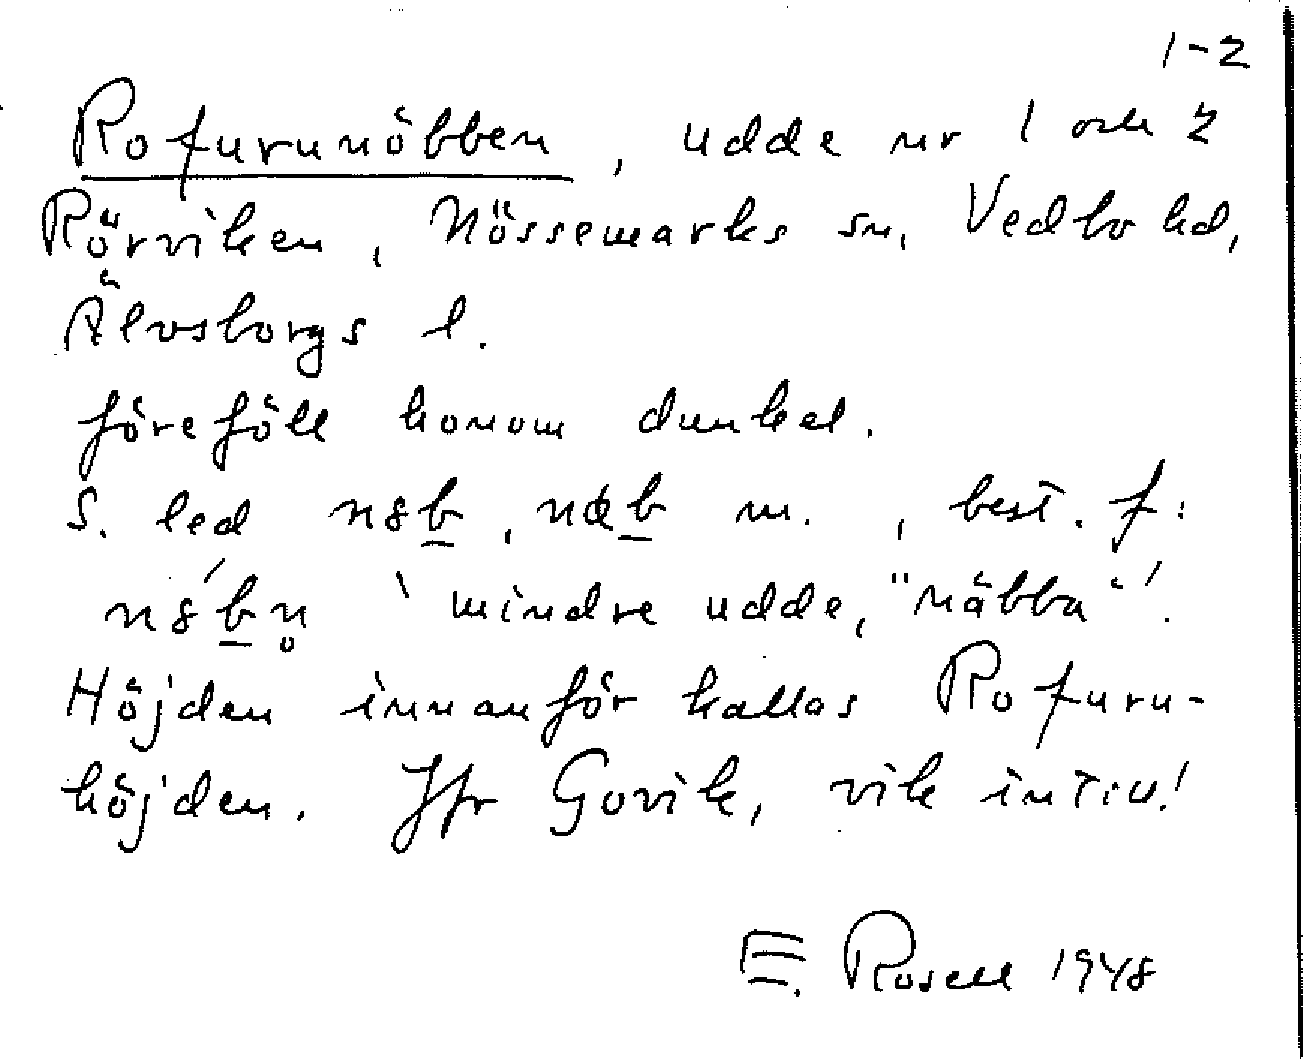 1-2
Rofurunöbben, udde nr 1 och 2
Rörviken, Nössemarks sn, Vedbo hd,
Älvsborgs l.
föreföll honom dunkel.
S. led n8b, nœb m., best. f:
n8́bn̥ ‵mindre udde, "näbba"′.
Höjden innanför kallas Rofuru-
höjden. Jfr Govik, vik intill!
E. Rosell 1948